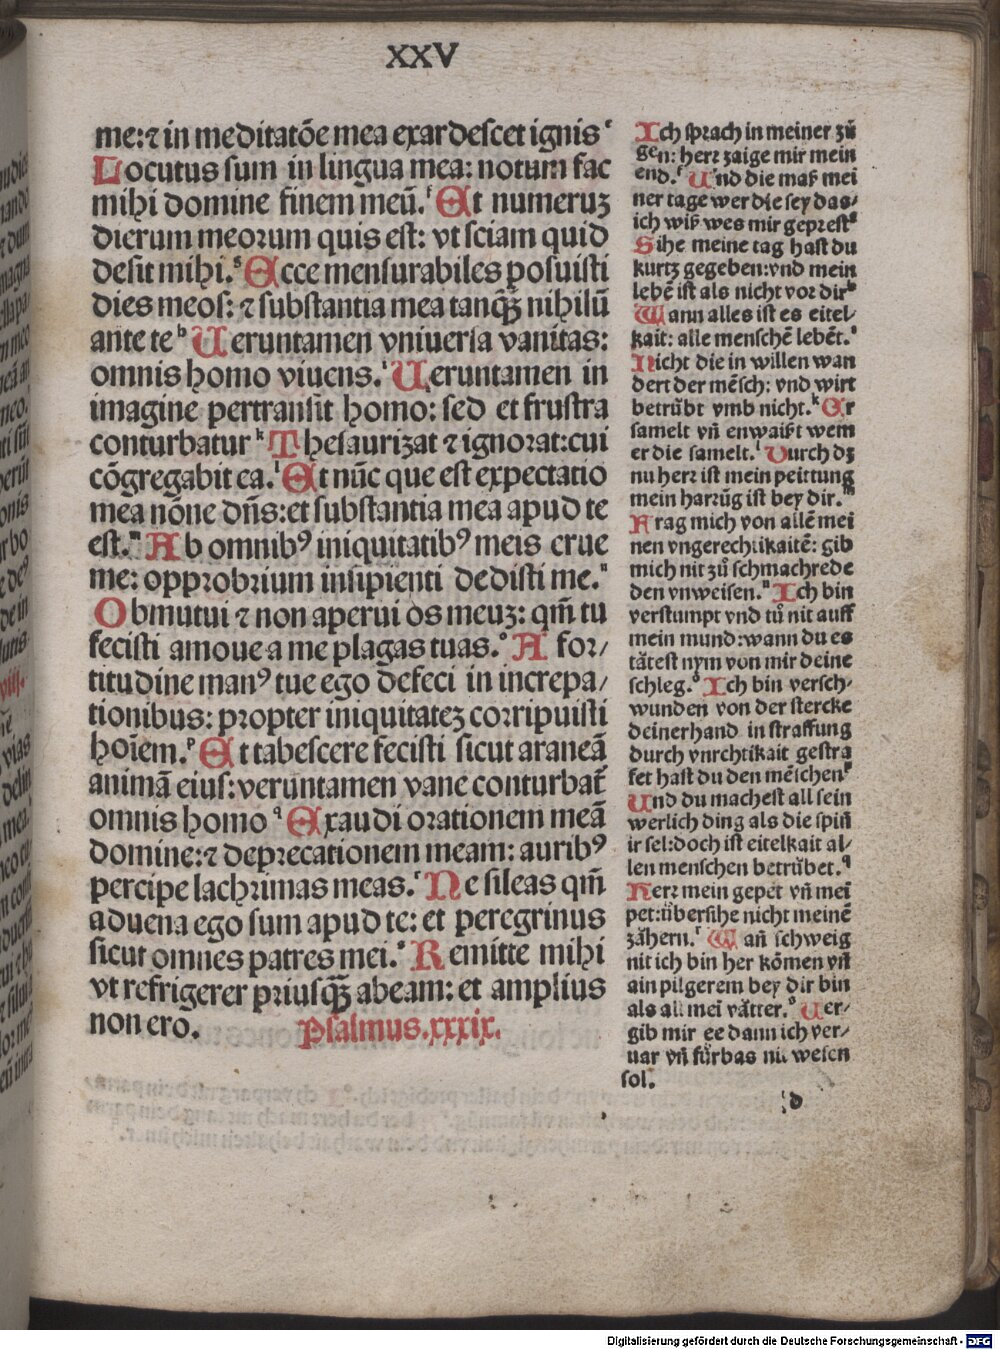 XXV
me:⁊ in meditatōe mea exardescet ignis ͤ
Locutus sum in lingua mea: notum fac
mihi domine finem meū. ᶠ Et numeruꝫ
dierum meorum quis est: vt sciam quid
desit mihi. ᵍ Ecce mensurabiles posuisti
dies meos: ⁊ substantia mea tanq̄ꝫ nihilū
ante te ʰ Ueruntamen vniuersa vanitas:
omnis homo viuens. ⁱ Ueruntamen in
imagine pertransit homo: sed et frustra
conturbatur ᵏ Thesaurizat ⁊ ignorat:cui
cōgregabit ea. ˡ Et nūc que est expectatio
mea nōne dn̄s:et substantia mea apud te
est. ᵐ Ab omnibꝰ iniquitatibꝰ meis erue
me: opprobrium insipienti dedisti me. ⁿ
Obmutui ⁊ non aperui os meuꝫ: qm̄ tu
fecisti amoue a me plagas tuas. ᵒ A for/
titudine manꝰ tue ego defeci in increpa/
tionibus: propter iniquitateꝫ corripuisti
hoīem. ᵖ Et tabescere fecisti sicut araneā
animā eius:veruntamen vane conturbat̄
omnis homo ᑫ Exaudi orationem meā
domine:⁊ deprecationem meam: auribꝰ
percipe lachrimas meas. ʳ Ne sileas qm̄
aduena ego sum apud te: et peregrinus
sicut omnes patres mei. ˢ Remitte mihi
vt refrigerer priusq̄ꝫ abeam: et amplius
non ero. Psalmus.xxxix.
Ich sprach in meiner zů
gen: herr zaige mir mein
end. ᶠ Und die maß mei
ner tage wer die sey das/
ich wiß wes mir geprest ᵍ
Sihe meine tag hast du
kurtz gegeben:vnd mein
lebē ist als nicht vor dir ʰ
Wann alles ist es eitel/
kait: alle menschē lebēt. ⁱ
Nicht die in willen wan
dert der mēsch: vnd wirt
betrůbt vmb nicht. ᵏ Er
samelt vn̄ enwaißt wem
er die samelt. ˡ Durch dꝫ
nu herr ist mein peittung
mein harrůg ist bey dir. ᵐ
Frag mich von allē mei
nen vngerechtikaitē: gib
mich nit zů schmachrede
den vnweisen. ⁿ Ich bin
verstumpt vnd tů nit auff
mein mund:wann du es
tätest nym von mir deine
schleg. ᵒ Ich bin versch/
wunden von der stercke
deinerhand in straffung
durch vnrchtikait gestra
fet hast du den mēschen ᵖ
Und du machest all sein
werlich ding als die spiñ
ir sel:doch ist eitelkait al/
len menschen betrůbet. ᑫ
Herr mein gepet vn̄ mei
pet:übersihe nicht meinē
zähern. ʳ Wañ schweig
nit ich bin her kömen vn̄
ain pilgerem bey dir bin
als all mei vätter. ˢ Uer-
gib mir ee dann ich ver/
uar vn̄ fürbas nit wesen
sol.
d
Digitalisierung gefördert durch die Deutsche Forschungsgemeinschaft - DFG